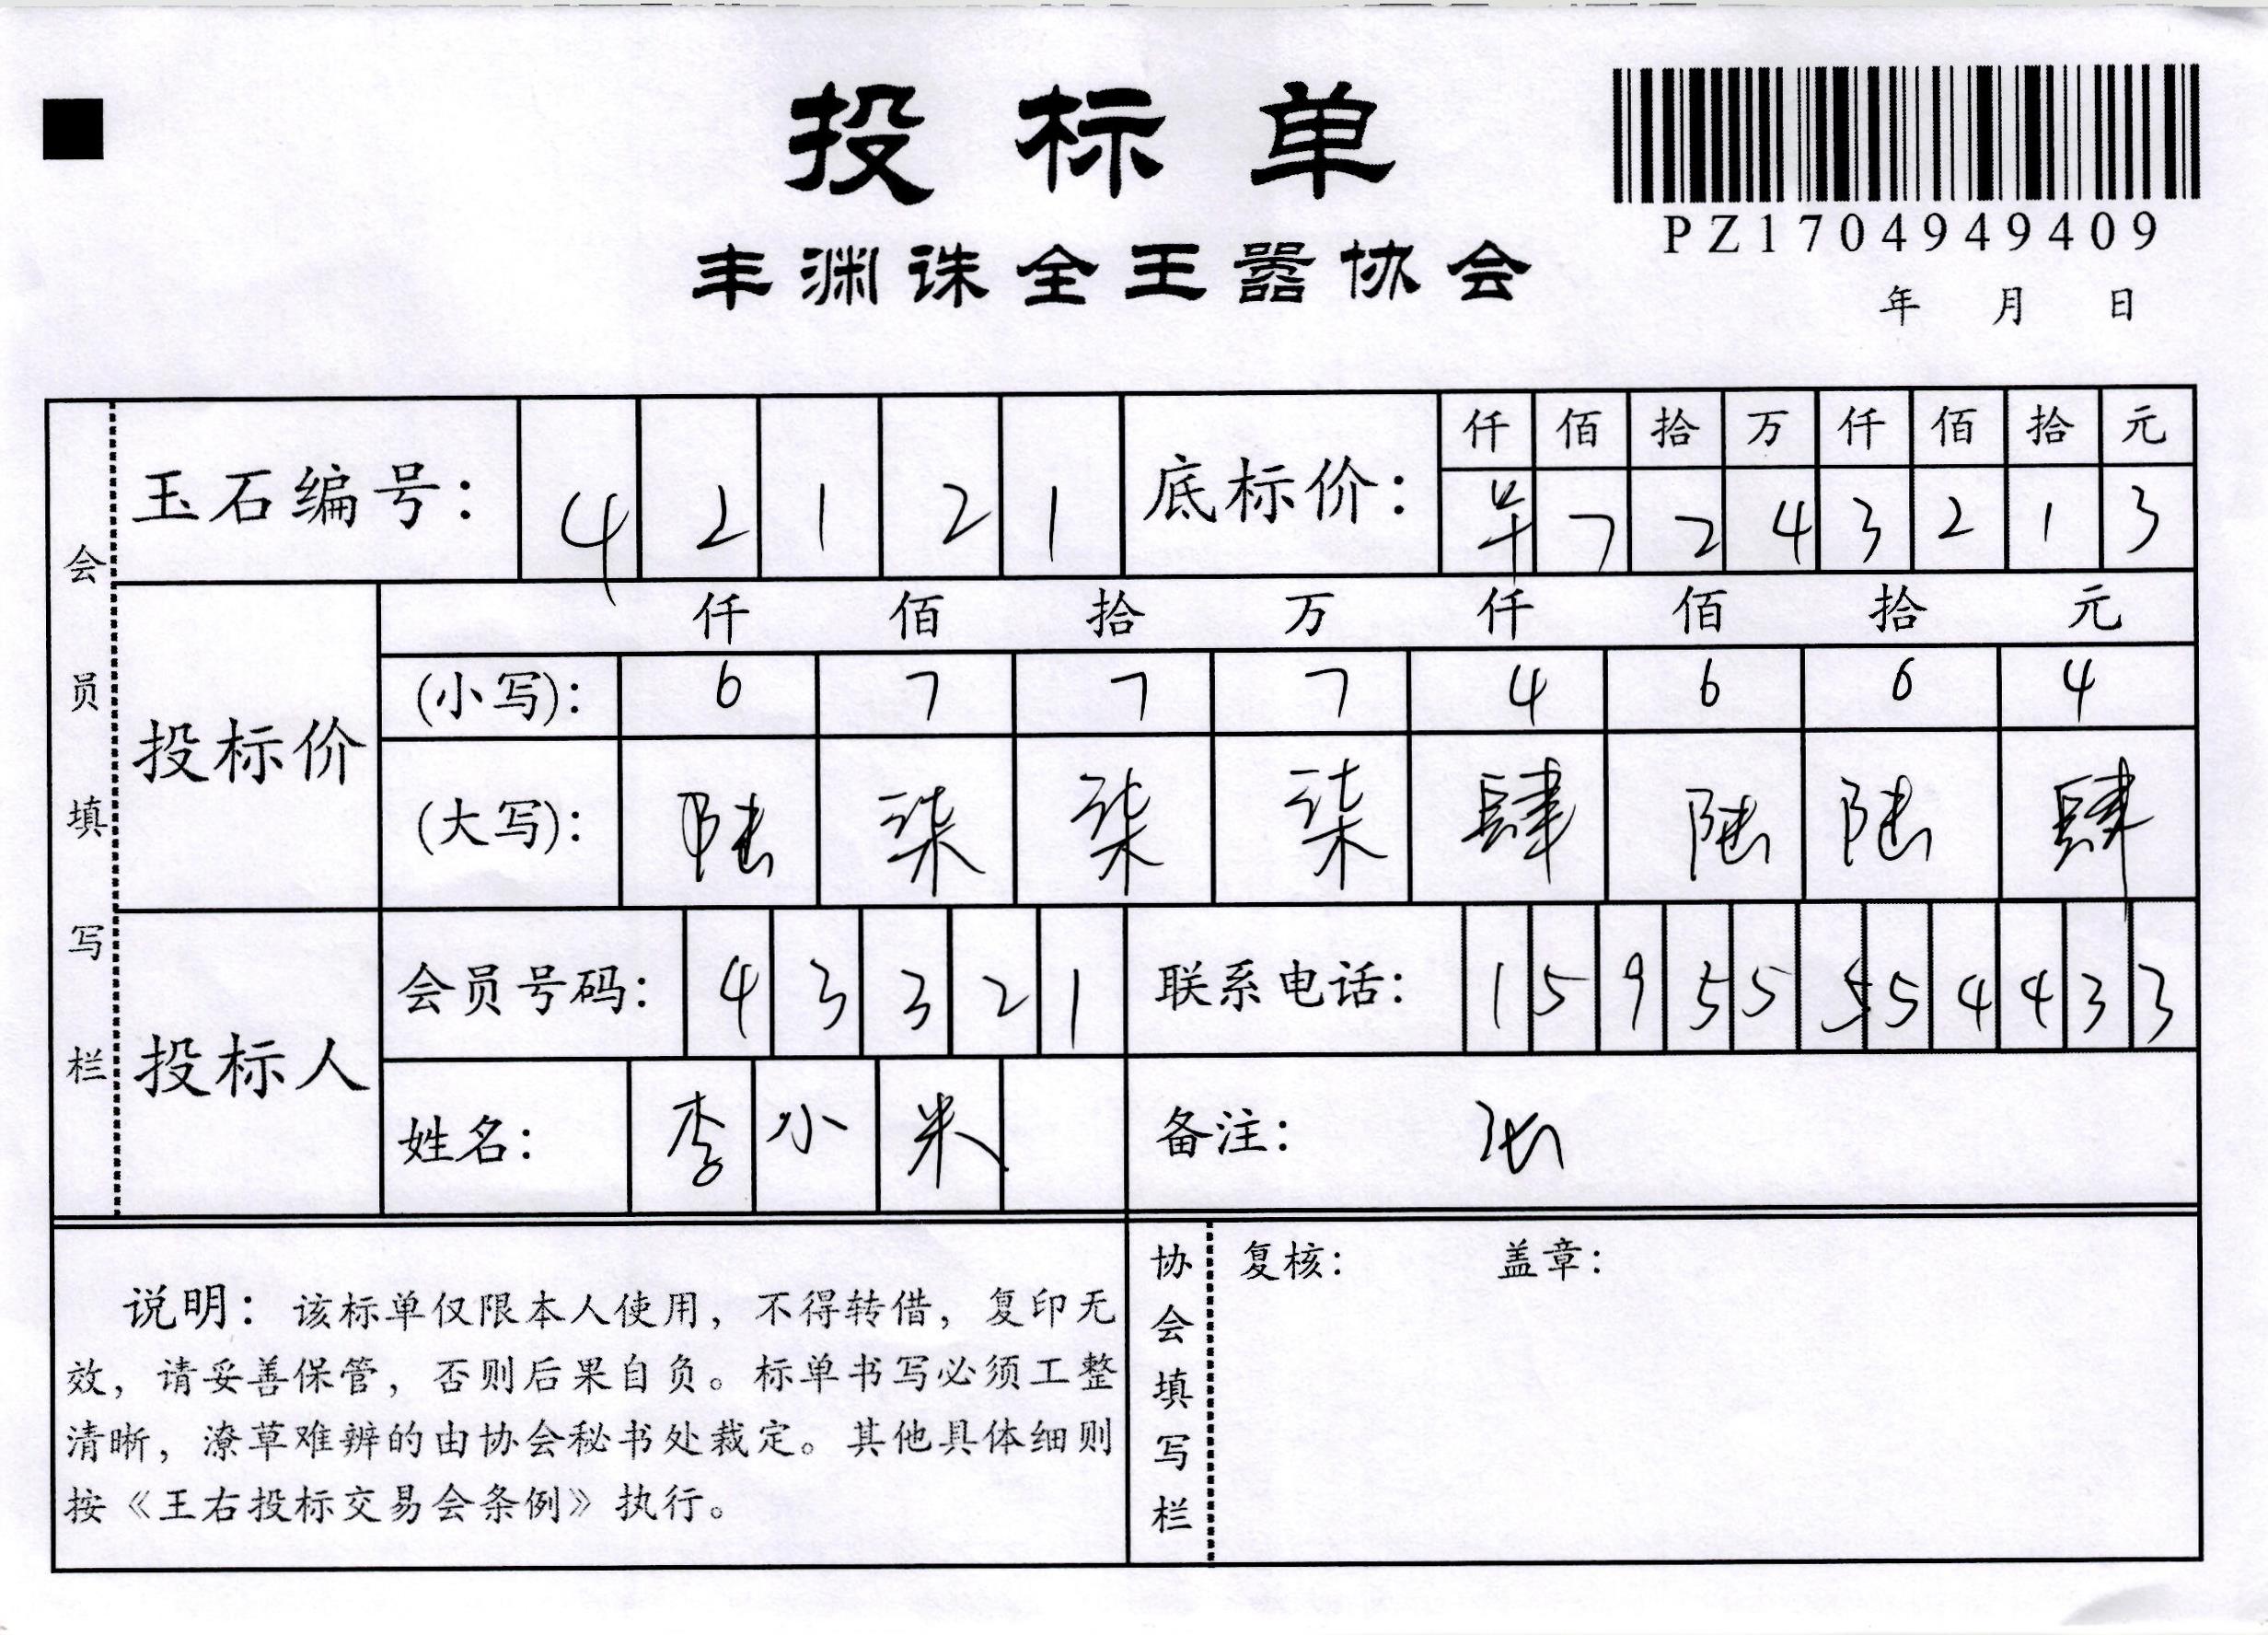 投标单
PZ1704949409
丰渊诛全王嚣协会
年 月 日
会员填写栏
玉石编号： 4 2 1 2 1
底标价： 仟 佰 拾 万 仟 佰 拾 元
7 2 4 3 2 1 3
投标价
仟 佰 拾 万 仟 佰 拾 元
(小写)： 6 7 7 7 4 6 6 4
(大写)： 陆 柒 柒 柒 肆 陆 陆 肆
投标人
会员号码： 4 3 3 2 1
联系电话： 1 5 9 5 5 5 5 4 4 3 3
姓名： 李 小 米
备注：
说明：该标单仅限本人使用，不得转借，复印无
效，请妥善保管，否则后果自负。标单书写必须工整
清晰，潦草难辨的由协会秘书处裁定。其他具体细则
按《王右投标交易会条例》执行。
协会填写栏
复核： 盖章：